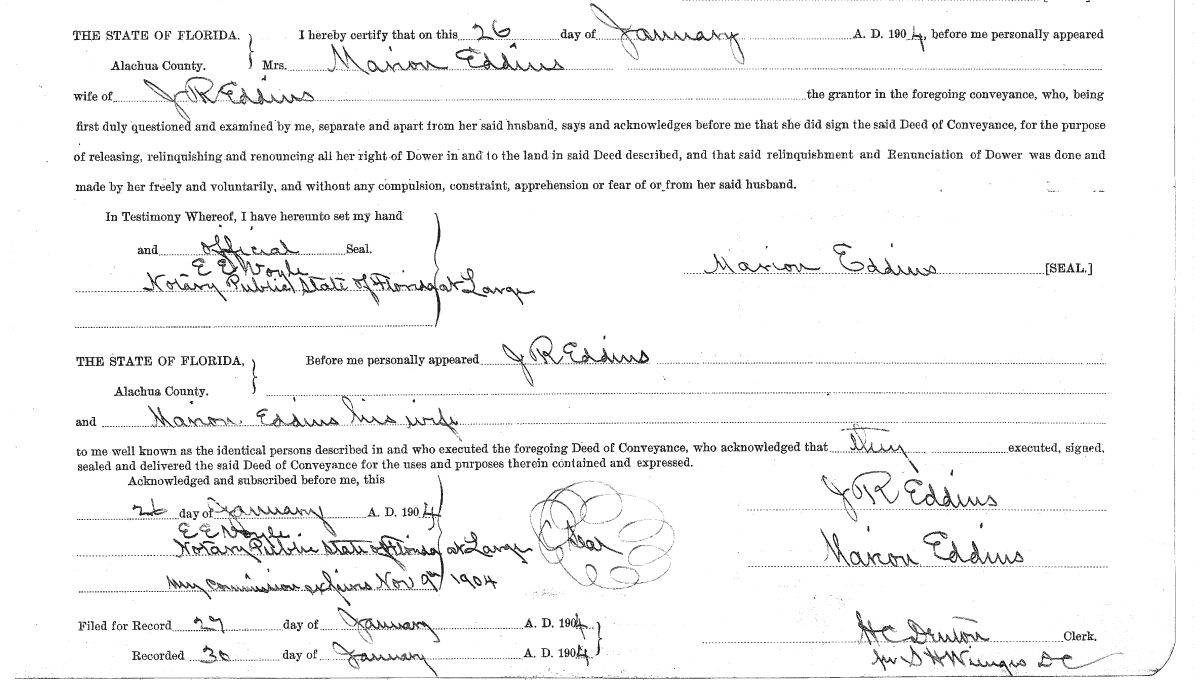 THE STATE OF FLORIDA. I hereby certify that on this 26 day of January A. D. 1904, before me personally appeared
Alachua County. Mrs. Marion Eddins
wife of J R Eddins the grantor in the foregoing conveyance, who, being
first duly questioned and examined by me, separate and apart from her said husband, says and acknowledges before me that she did sign the said Deed of Conveyance, for the purpose
of releasing, relinquishing and renouncing all her right of Dower in and to the land in said Deed described, and that said relinquishment and Renunciation of Dower was done and
made by her freely and voluntarily, and without any compulsion, constraint, apprehension or fear of or from her said husband.
In Testimony Whereof, I have hereunto set my hand
and official Seal.
E E Voyle
Notary Public State of Florida at Large
Marion Eddins [SEAL.]
THE STATE OF FLORIDA, Before me personally appeared J R Eddins
Alachua County.
and Marion Eddins his wife
to me well known as the identical persons described in and who executed the foregoing Deed of Conveyance, who acknowledged that they executed, signed,
sealed and delivered the said Deed of Conveyance for the uses and purposes therein contained and expressed.
Acknowledged and subscribed before me, this
26 day of January A. D. 1904
E E Voyle
Notary Public State of Florida at Large
My commission expires Nov 9th 1904
Seal
J R Eddins
Marion Eddins
Filed for Record 27 day of January A. D. 1904
Recorded 30 day of January A. D. 1904
H C Denton Clerk.
per S H Wienges D C